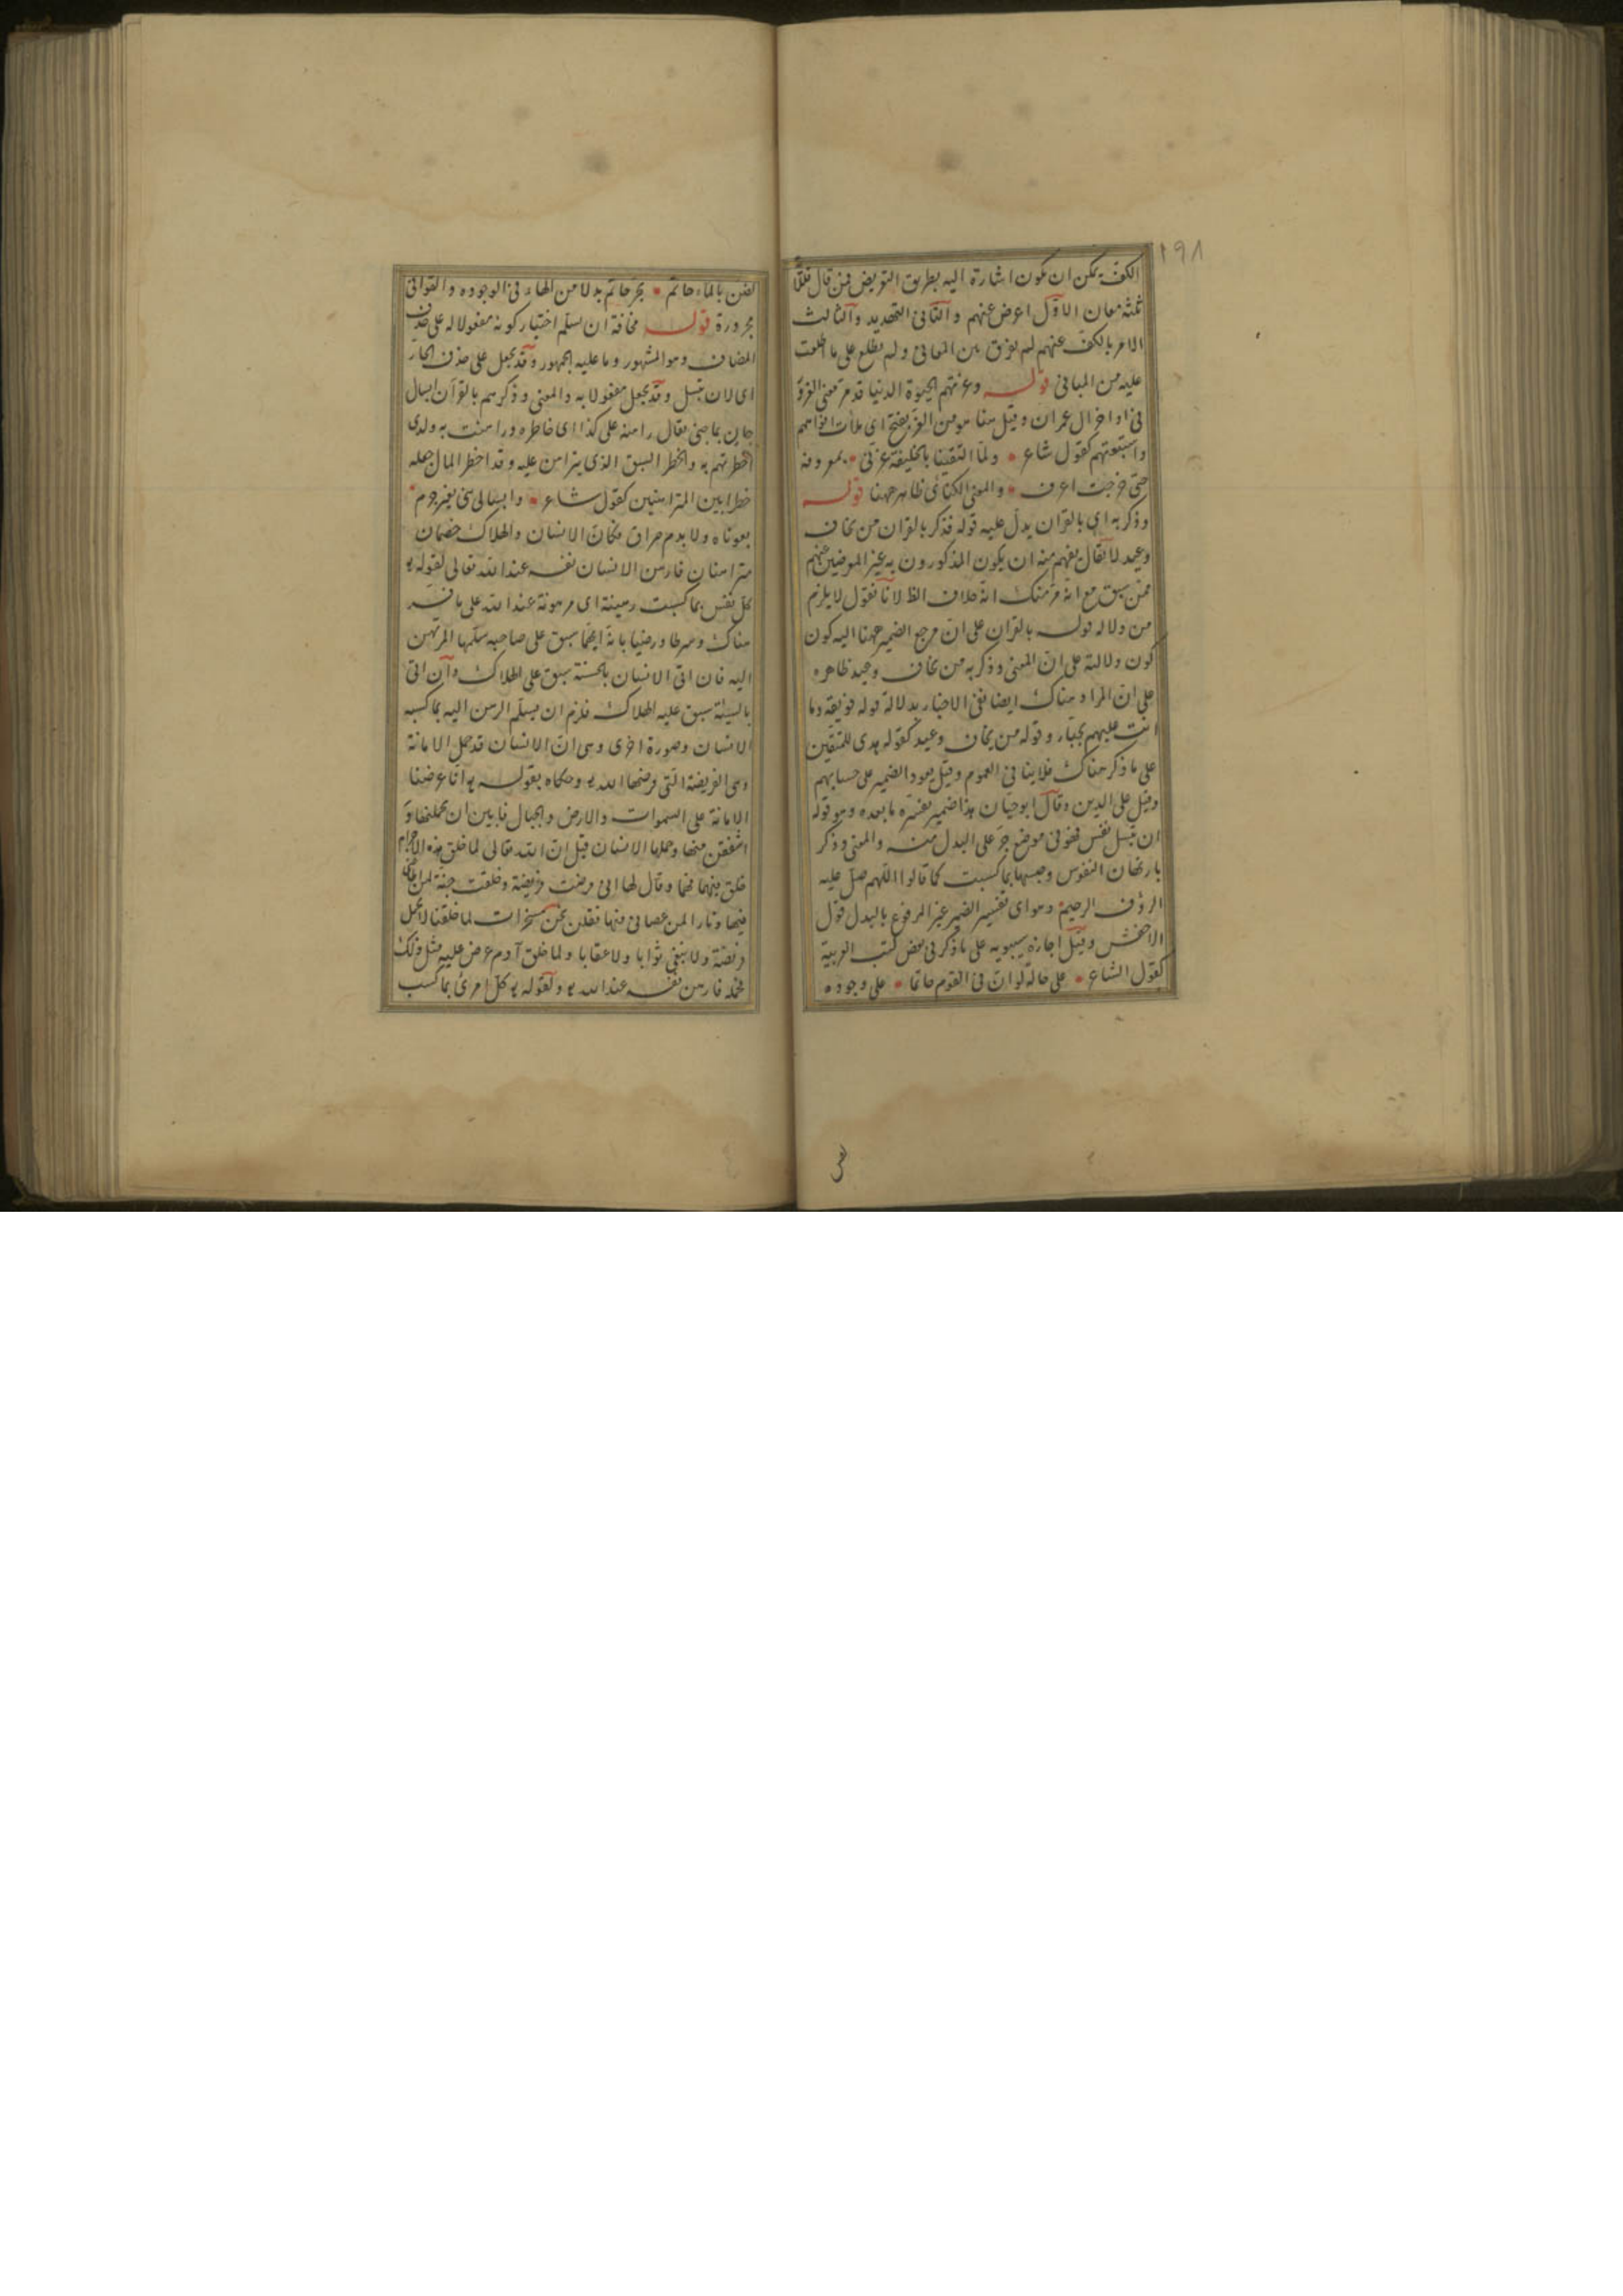 ١٩٨
الكف يمكن ان يكون اشارة اليه بطريق التعريض فمن قال فللّا
ثلثة معان الاوّل اعرض عنهم والثانى التهديد والثالث
الامر بالكف عنهم لم يفرق بين المعانى ولم يطلع على ما اطلعت
عليه من المبانى قوله وغرتهم الحيوة الدنيا قد مرّ معنى الغرور
فى اواخر ال عمران وقيل هنا هو من الغرّ بفتح اى ملأت افواههم
واشبعتهم كقول شاعر ولمّا التقينا بالخليفة غرّنى بمعروفه
حتى خرجت اعرف والمعنى الكنائى ظاهر ههنا قوله
وذكر به اى بالقرآن يدلّ عليه قوله فذكر بالقران من يخاف
وعيد لا يقال يفهم منه ان يكون المذكورون به غير المعرضين عنهم
ممّن سبق مع انه مرّ منك انه خلاف الظ لانّا نقول لا يلزم
من دلاله قوله بالقران على انّ مرجع الضمير ههنا اليه كون
كون دلالته على انّ المعنى وذكر به من يخاف وعيد ظاهره
على انّ المراد هناك ايضا نفى الاجبار بدلالة قوله فويقه وما
انت عليهم بجبّار وقوله من يخاف وعيد كقوله هدى للمتقين
على ما ذكر هناك فلا ينافى العموم وقيل يعود الضمير على حسابهم
وقيل على الدين وقال ابو حيّان هذا ضمير يفسّره ما بعده وهو قوله
ان تبسل نفس فهو فى موضع جرّ على البدل منه والمعنى وذكر
بارتهان النفوس وحبسها بما كسبت كما قالوا اللّهم صلّ عليه
الرؤف الرحيم وهو اى تفسير الضمير غير المرفوع بالبدل قول
الاخفش وقيل اجازه سيبويه على ما ذكر فى بعض كتب العربية
كقول الشاعر على حالة لو انّ فى القوم حاتما على وجوده
لضنّ بالماء حاتم بجرّ حاتم بدلا من الهاء فى الوجوده والقوافى
مجرورة قوله مخافة ان تسلّم اختيار كونه مفعولا له على حذف
المضاف وهو المشهور وما عليه الجمهور وقد يجعل على حذف الجارّ
اى لان تبسل وقد يجعل مفعولا به والمعنى وذكرهم بالقرآن ابسال
يقال راهنه على كذا اى خاطره وراهنت به ولدى
اخطرتهم به والخطر السبق الذى يتراهن عليه وقد اخطر المال جعله
خطرا بين المتراهنين كقول شاعر وابسالى بنىّ بغير جرم
بعوناه ولا بدم مراق فكانّ الانسان والهلاك خصمان
متراهنان فارهن الانسان نفسه عند الله تعالى لقوله
كلّ نفس بما كسبت رهينة اى مرهونة عند الله على ما فسّر
هناك وشرطا ورضيا بانه ايّهما سبق على صاحبه سلّمها المرتهن
اليه فان اتى الانسان بالحسنة سبق على الهلاك وان اتى
بالسيّئة سبق عليه الهلاك فلزم ان يسلّم الرهن اليه بما كسبه
الانسان وصورة اخرى وهى انّ الانسان قد حمل الامانة
وهى الفريضة التى فرضها الله وحكاه بقوله انّا عرضنا
الامانة على السموات والارض والجبال فابين ان يحملنها و
اشفقن منها وحملها الانسان قيل انّ الله تعالى لما خلق هذه الاجرام
خلق فيها فهما وقال لها انى فرضت فريضة وخلقت جنّة لمن اطاعنى
فيها ونارا لمن عصانى فيها فقلن نحن مسخّرات لما خلقنا لا نحمل
فريضة ولا نبتغى ثوابا ولا عقابا ولما خلق آدم عرض عليه مثل ذلك
فحمله فارهن نفسه عند الله ولقوله كلّ امرئ بما كسب
لضن